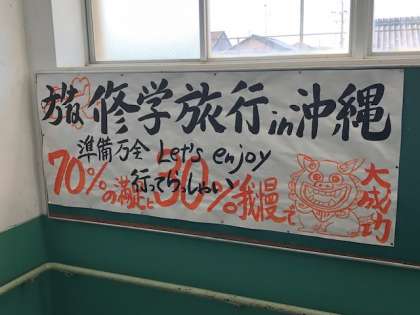 修学旅行in沖縄
準備万全 Let's enjoy
行ってらっしゃい
70%の満足と30%の我慢で
大成功